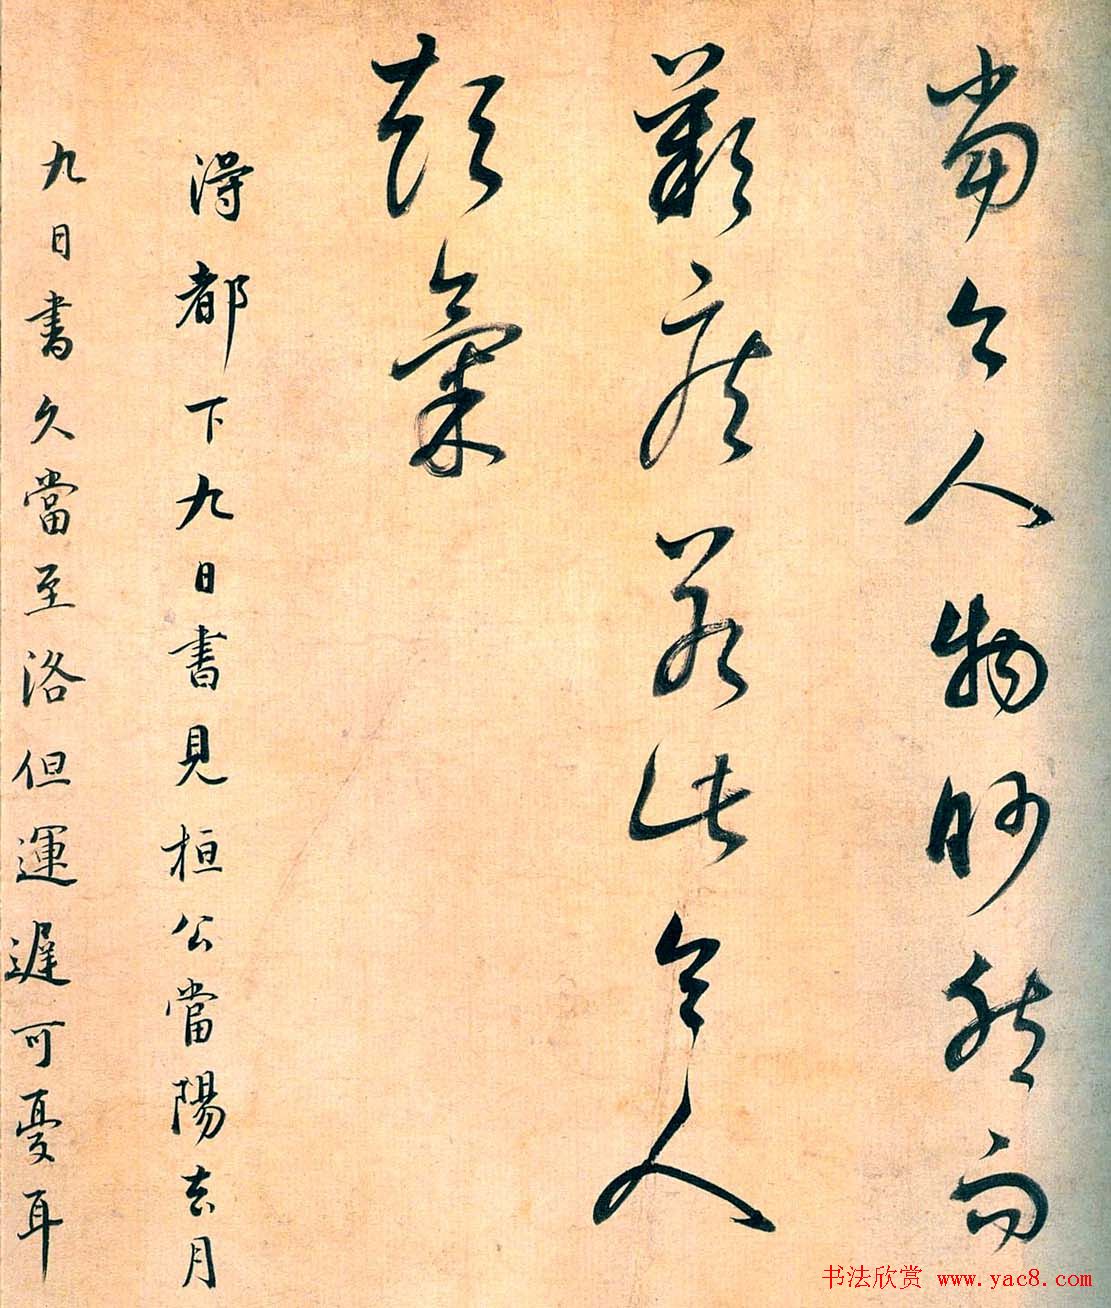 當今人物眇然而
艱疾若此令人
短氣
得都下九日書見桓公當陽去月
九日書久當至洛但運遲可憂耳
书法欣赏 www.yac8.com